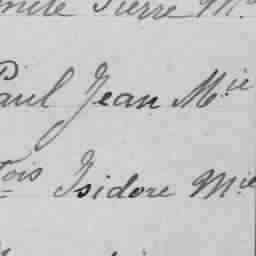 Pierre M.
Paul Jean M.ie
Fois Isidore M.ie